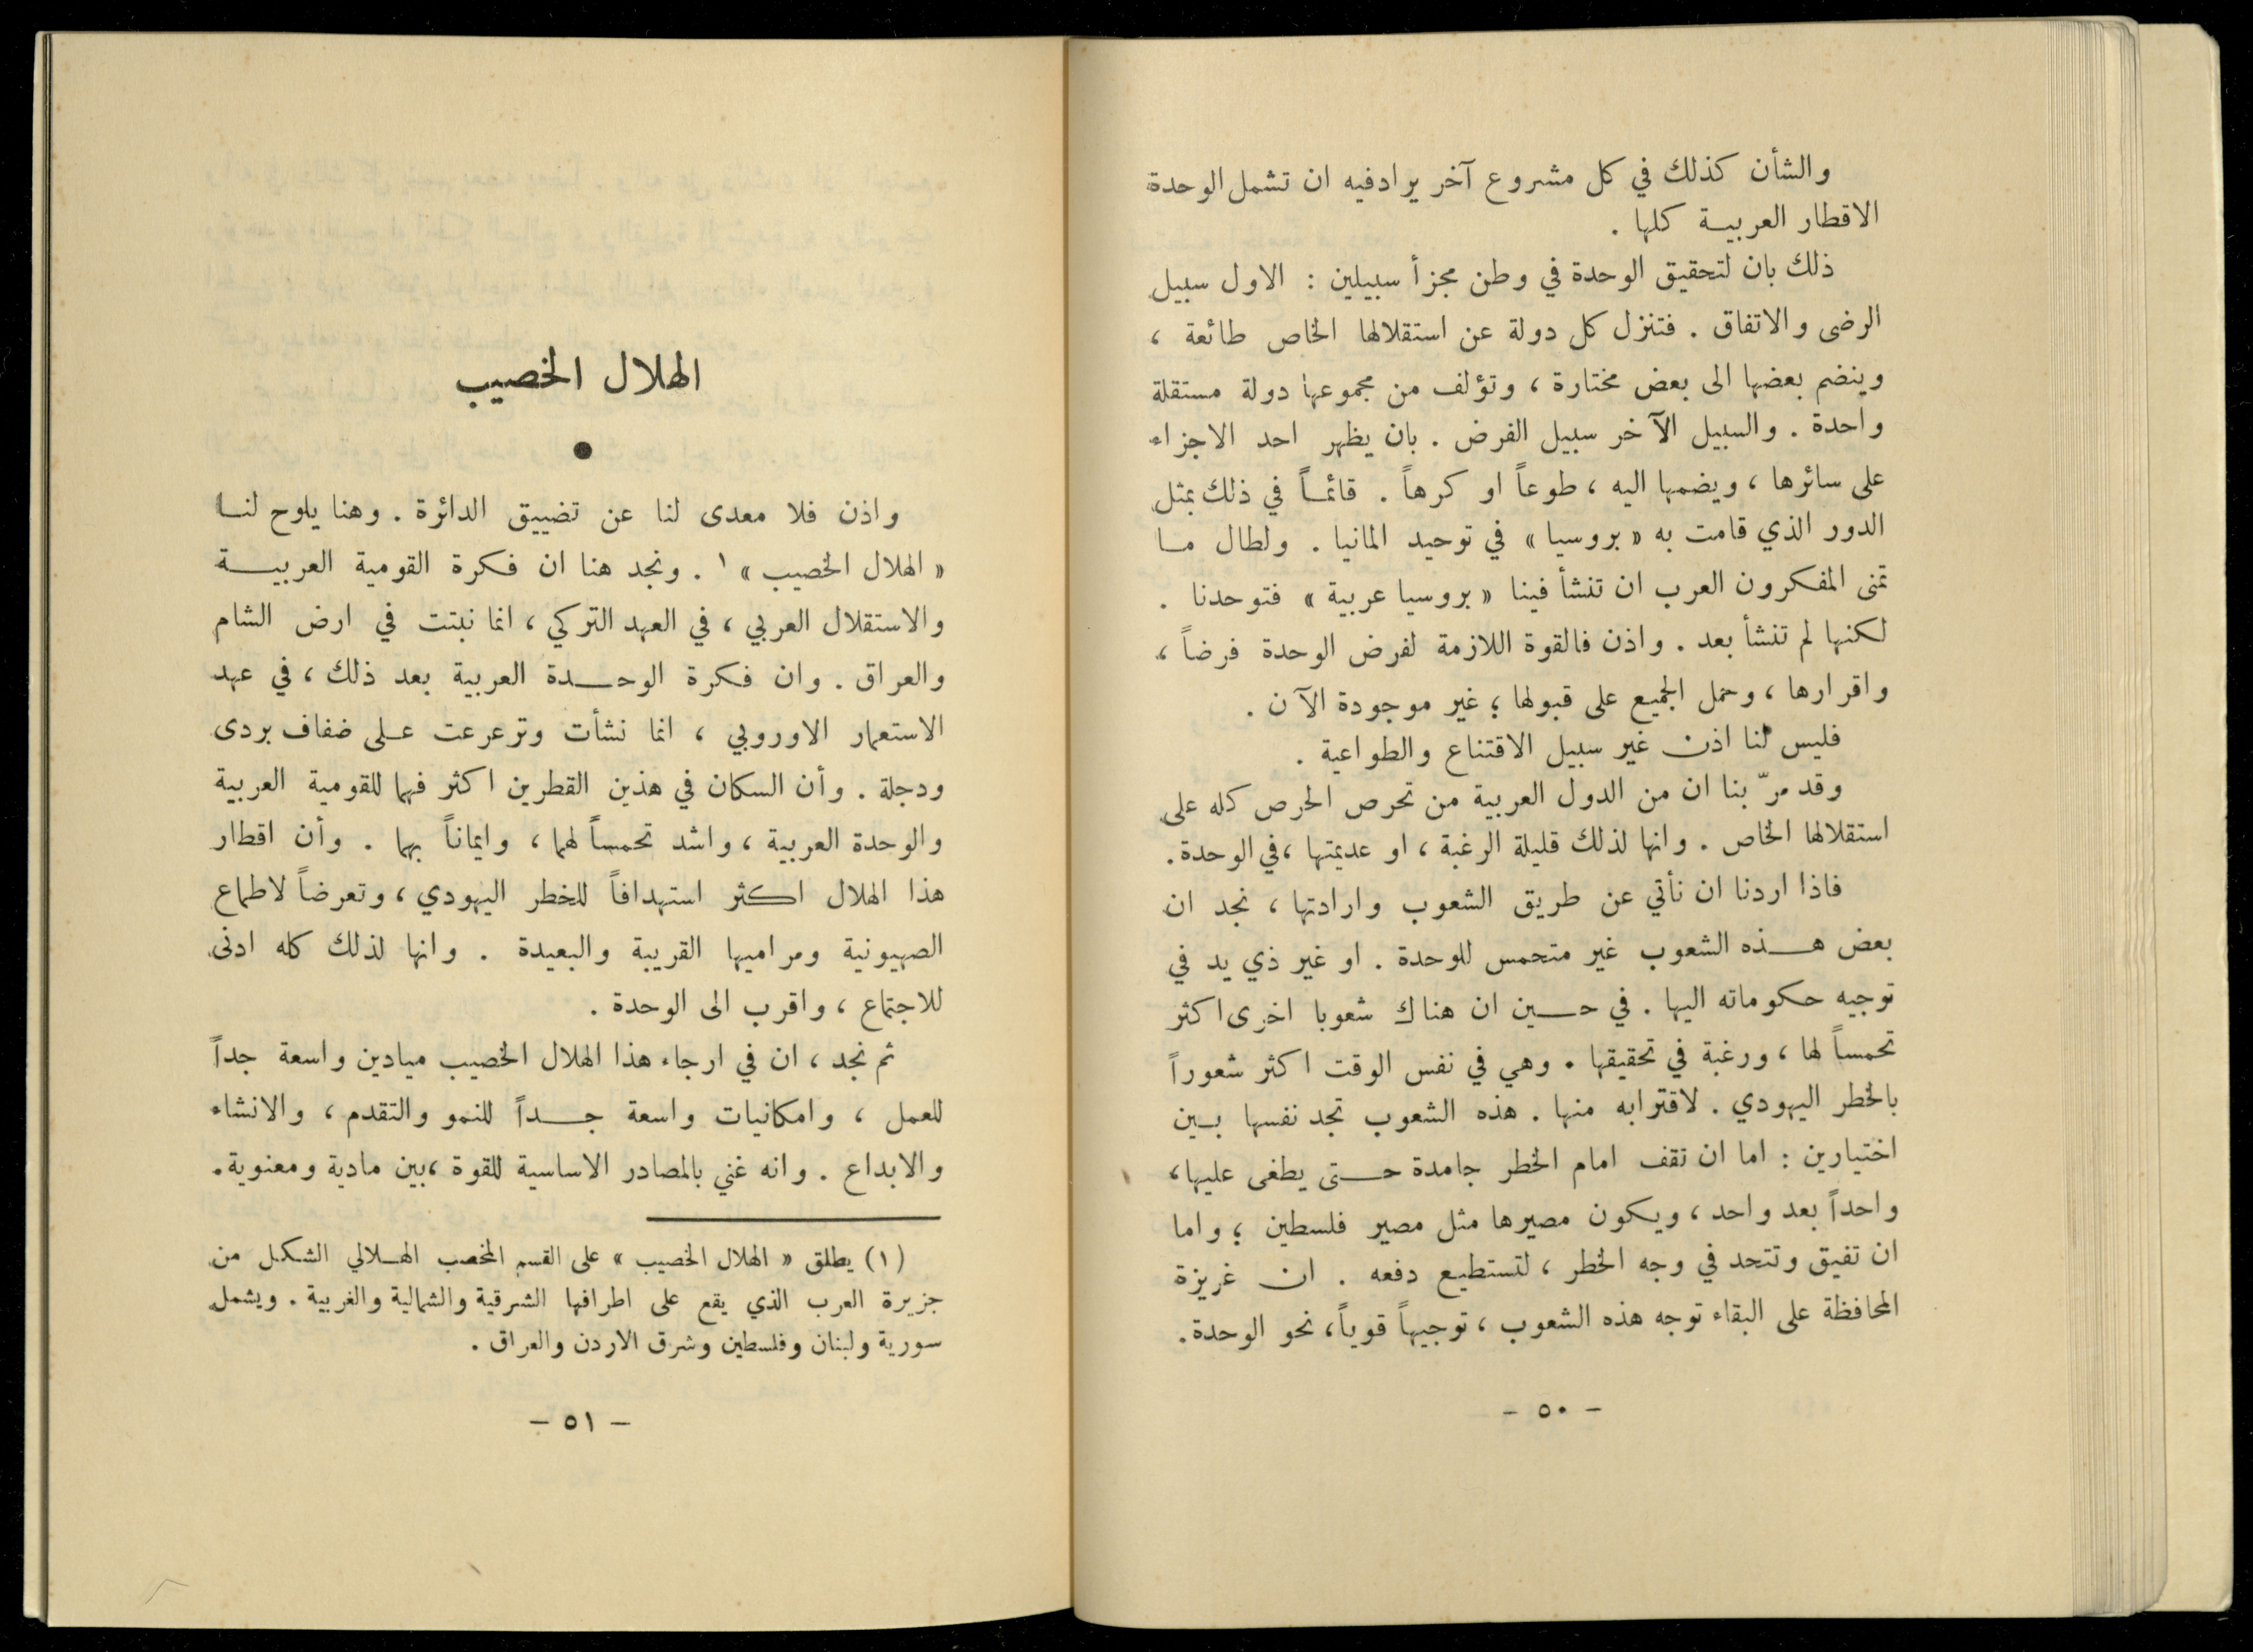 والشأن كذلك في كل مشروع آخر يراد فيه ان تشمل الوحدة
الاقطار العربية كلها .
ذلك بان لتحقيق الوحدة في وطن مجزأ سبيلين : الاول سبيل
الرضى والاتفاق . فتنزل كل دولة عن استقلالها الخاص طائعة ،
وينضم بعضها الى بعض مختارة ، وتؤلف من مجموعها دولة مستقلة
واحدة . والسبيل الآخر سبيل الفرض . بان يظهر احد الاجزاء
على سائرها ، ويضمها اليه ، طوعاً او كرهاً . قائماً في ذلك بمثل
الدور الذي قامت به « بروسيا » في توحيد المانيا . ولطال ما
تمنى المفكرون العرب ان تنشأ فينا « بروسيا عربية » فتوحدنا .
لكنها لم تنشأ بعد . واذن فالقوة اللازمة لفرض الوحدة فرضاً ،
واقرارها ، وحمل الجميع على قبولها ؛ غير موجودة الآن .
فليس لنا اذن غير سبيل الاقتناع والطواعية .
وقد مرّ بنا ان من الدول العربية من تحرص الحرص كله على
استقلالها الخاص . وانها لذلك قليلة الرغبة ، او عديمتها ، في الوحدة .
فاذا اردنا ان نأتي عن طريق الشعوب وارادتها ، نجد ان
بعض هذه الشعوب غير متحمس للوحدة . او غير ذي يد في
توجيه حكوماته اليها . في حين ان هناك شعوبا اخرى اكثر
تحمساً لها ، ورغبة في تحقيقها . وهي في نفس الوقت اكثر شعوراً
بالخطر اليهودي . لاقترابه منها . هذه الشعوب تجد نفسها بين
اختيارين : اما ان تقف امام الخطر جامدة حتى يطغى عليها ،
واحداً بعد واحد ، ويكون مصيرها مثل مصير فلسطين ؛ واما
ان تفيق وتتحد في وجه الخطر ، لتستطيع دفعه . ان غريزة
المحافظة على البقاء توجه هذه الشعوب ، توجيهاً قوياً ، نحو الوحدة .
- ٥٠ -
الهلال الخصيب
واذن فلا معدى لنا عن تضييق الدائرة . وهنا يلوح لنا
« الهلال الخصيب » ١ . ونجد هنا ان فكرة القومية العربية
والاستقلال العربي ، في العهد التركي ، انما نبتت في ارض الشام
والعراق . وان فكرة الوحدة العربية بعد ذلك ، في عهد
الاستعمار الاوروبي ، انما نشأت وترعرعت على ضفاف بردى
ودجلة . وأن السكان في هذين القطرين اكثر فهما للقومية العربية
والوحدة العربية ، واشد تحمساً لهما ، وايماناً بهما . وأن اقطار
هذا الهلال اكثر استهدافاً للخطر اليهودي ، وتعرضاً لاطماع
الصهيونية ومراميها القريبة والبعيدة . وانها لذلك كله ادنى
للاجتماع ، واقرب الى الوحدة .
ثم نجد ، ان في ارجاء هذا الهلال الخصيب ميادين واسعة جداً
للعمل ، وامكانيات واسعة جداً للنمو والتقدم ، والانشاء
والابداع . وانه غني بالمصادر الاساسية للقوة ، بين مادية ومعنوية .
(١) يطلق « الهلال الخصيب » على القسم المخصب الهلالي الشكل من
جزيرة العرب الذي يقع على اطرافها الشرقية والشمالية والغربية . ويشمل
سورية ولبنان وفلسطين وشرق الاردن والعراق .
- ٥١ -